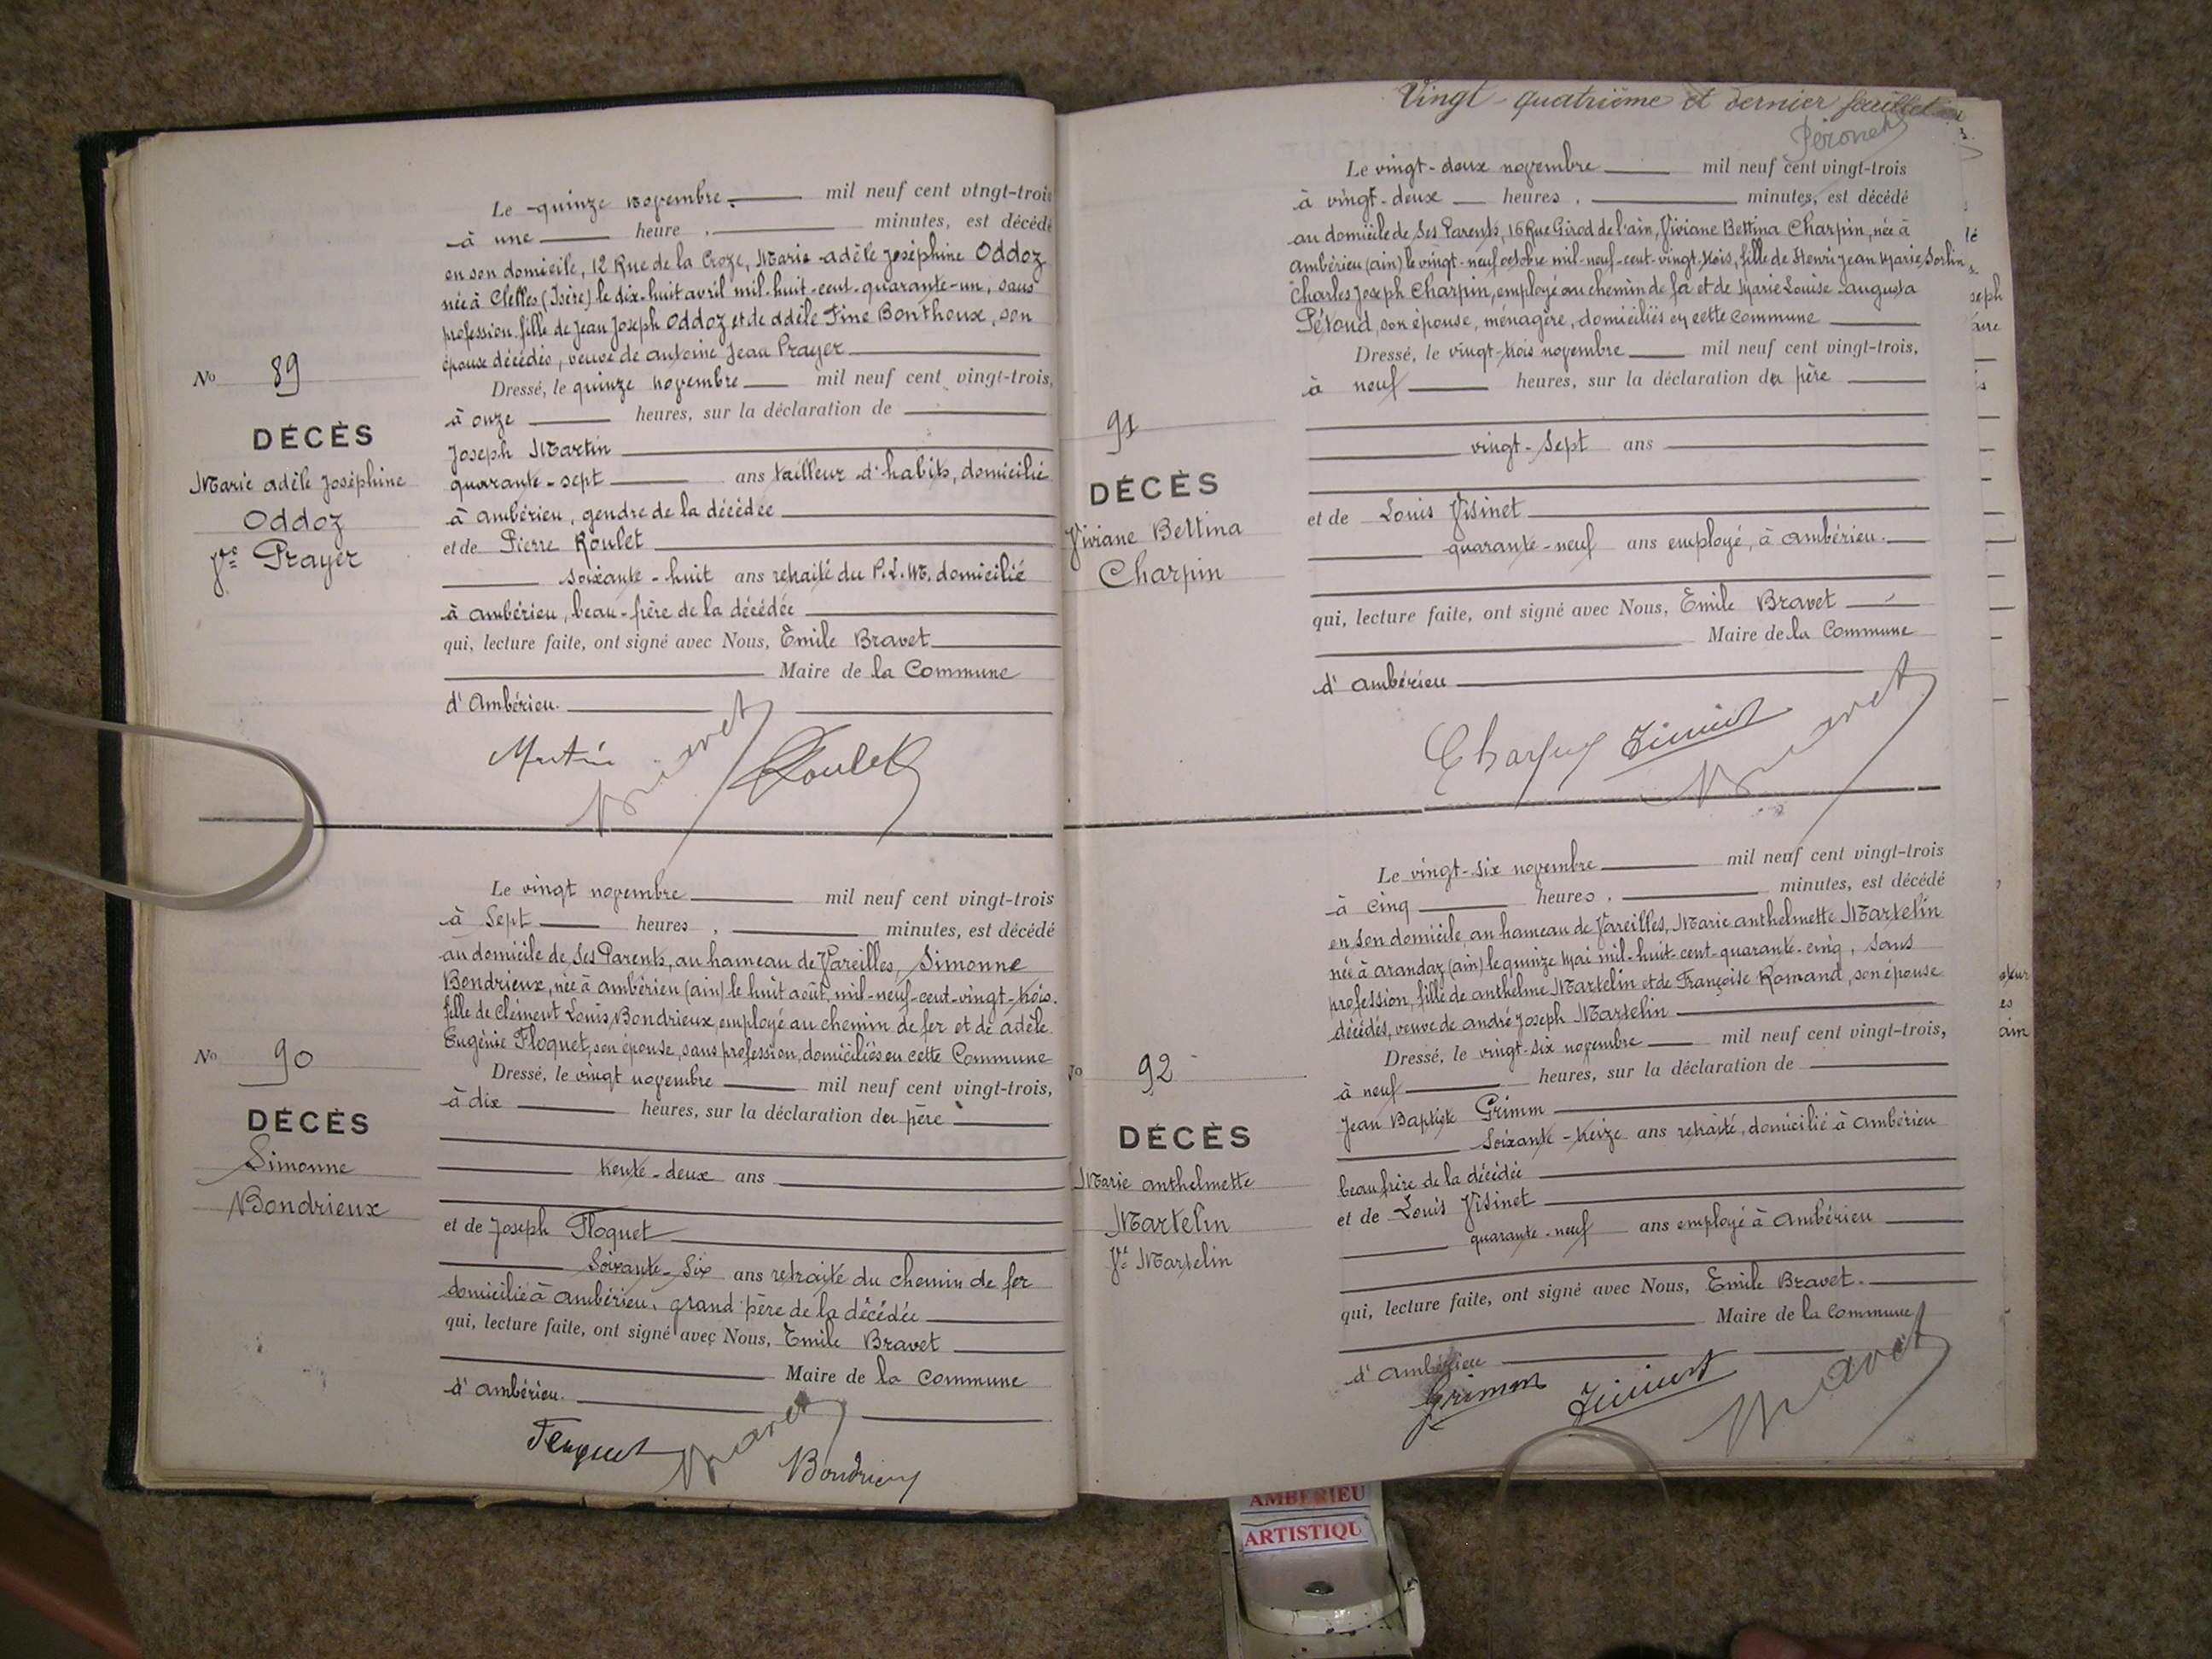 Le quinze novembre. mil neuf cent vingt-trois
à une heure , minutes, est décédé
en son domicile, 12 Rue de la Croze, Marie adèle Joséphine Oddoz
née à Clelles (Isère) le dix-huit avril mil-huit-cent-quarante-un, sans
profession fille de Jean Joseph Oddoz et de adèle Fine Bonthoux, son
épouse décédés, veuve de antoine Jean Prayer
No 89
Dressé, le quinze novembre mil neuf cent vingt-trois,
à onze heures, sur la déclaration de
DÉCÈS
Joseph Martin
Marie adèle Joséphine
quarante-sept ans tailleur d'habits, domicilié
Oddoz
à ambérieu, gendre de la décédée
Vve Prayer
et de Pierre Roulet
soixante-huit ans retraité du P.L.M. domicilié
à ambérieu, beau-frère de la décédée
qui, lecture faite, ont signé avec Nous, Emile Bravet
Maire de la Commune
d'Ambérieu.
Martin Bravet Roulet
Le vingt novembre mil neuf cent vingt-trois
à Sept heures , minutes, est décédé
au domicile de Ses Parents, au hameau de Vareilles, Simonne
Bondrieux, née à ambérieu (ain) le huit août mil-neuf-cent-vingt-trois.
fille de Clément Louis Bondrieux employé au chemin de fer et de adèle
Eugénie Floquet, son épouse, sans profession, domiciliés en cette Commune
No 90
Dressé, le vingt novembre mil neuf cent vingt-trois,
à dix heures, sur la déclaration du père
DÉCÈS
Simonne
trente-deux ans
Bondrieux
et de Joseph Floquet
Soixante-Six ans retraité du chemin de fer
domicilié à ambérieu, grand père de la décédée
qui, lecture faite, ont signé avec Nous, Emile Bravet
Maire de la Commune
d'ambérieu.
Bravet Bondrieux
Vingt-quatrième et dernier feuillet
Le vingt-deux novembre mil neuf cent vingt-trois
à vingt-deux heures , minutes, est décédé
au domicile de Ses Parents, 16 Rue Girod de l'ain, Viviane Bettina Charpin, née à
ambérieu (ain) le vingt-neuf octobre mil-neuf-cent-vingt-trois, fille de Henri Jean Marie Sorlin
Charles Joseph Charpin, employé au chemin de fer et de Marie Louise augusta
Pétoud, son épouse, ménagère, domiciliés en cette Commune
Dressé, le vingt-trois novembre mil neuf cent vingt-trois,
à neuf heures, sur la déclaration du père
91
vingt-Sept ans
DÉCÈS
et de Louis Visinet
Viviane Bettina
quarante-neuf ans employé, à ambérieu.
Charpin
qui, lecture faite, ont signé avec Nous, Emile Bravet
Maire de la Commune
d'ambérieu
Charpin Visinet Bravet
Le vingt-six novembre mil neuf cent vingt-trois
à cinq heures , minutes, est décédé
en son domicile, au hameau de Vareilles, Marie anthelmette Martelin
née à arandaz (ain) le quinze Mai mil-huit-cent-quarante-cinq, sans
profession, fille de anthelme Martelin et de Françoise Romand, son épouse
décédés, veuve de andré Joseph Martelin
Dressé, le vingt-six novembre mil neuf cent vingt-trois,
No 92
à neuf heures, sur la déclaration de
Jean Baptiste Grimm
DÉCÈS
Soixante-treize ans retraité, domicilié à ambérieu
Marie anthelmette
beau frère de la décédée
Martelin
et de Louis Visinet
Vve Martelin
quarante-neuf ans employé à ambérieu
qui, lecture faite, ont signé avec Nous, Emile Bravet.
Maire de la Commune
d'ambérieu
Grimm Visinet Bravet
AMBERIEU
ARTISTIQU